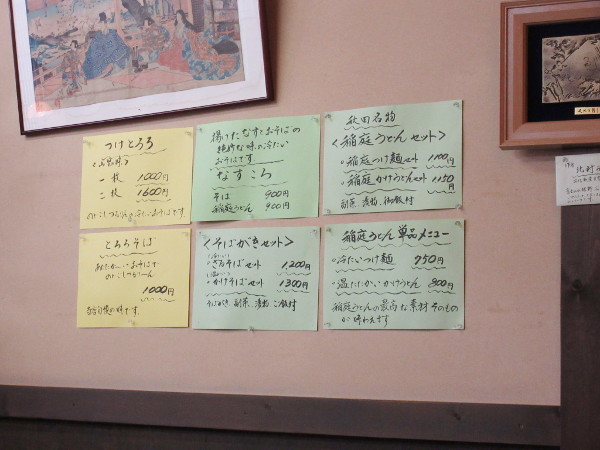 つけとろろ
一枚 1000円
二枚 1600円
揚げたなすとおそばの
絶妙な味の冷たい
おそばです
なすころ
そば 900円
稲庭うどん 900円
秋田名物
<稲庭うどんセット>
・稲庭つけ麺セット 1100円
・稲庭かけうどんセット 1150円
副菜 漬物 御飯付
とろろそば
あたたかいおそばで
1000円
<そばがきセット>
・ざるそばセット 1,200円
・かけそばセット 1300円
そばがき 副菜 漬物 ご飯付
稲庭うどん単品メニュー
・冷たいつけ麺 750円
・温たかいかけうどん 800円
稲庭うどんの最高な素材そのもの
が味わえます